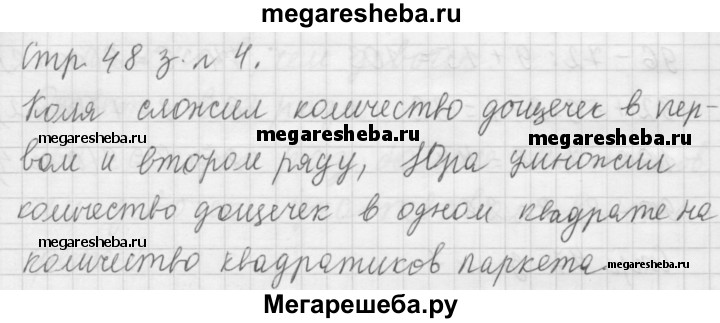 megaresheba.ru
Стр. 48 з. № 4.
Коля сложил количество дощечек в пер-
megaresheba.ru
megaresheba.ru
megaresheba.ru
вом и втором ряду, Юра умножил
количество дощечек в одном квадрате на
megaresheba.ru
количество квадратиков паркета.
megaresheba.ru
Мегарешеба.ру